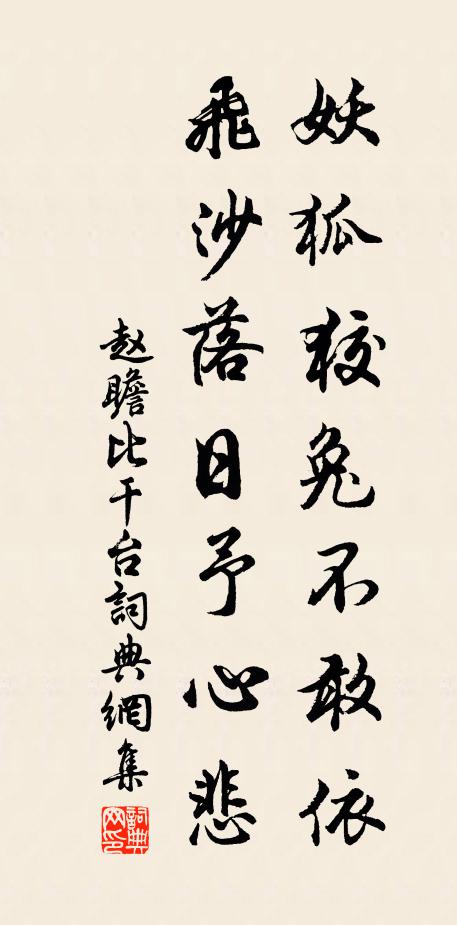 妖狐狡兔不敢依
飛沙落日予心悲
赵瞻比干台詞典網集
詞典网印